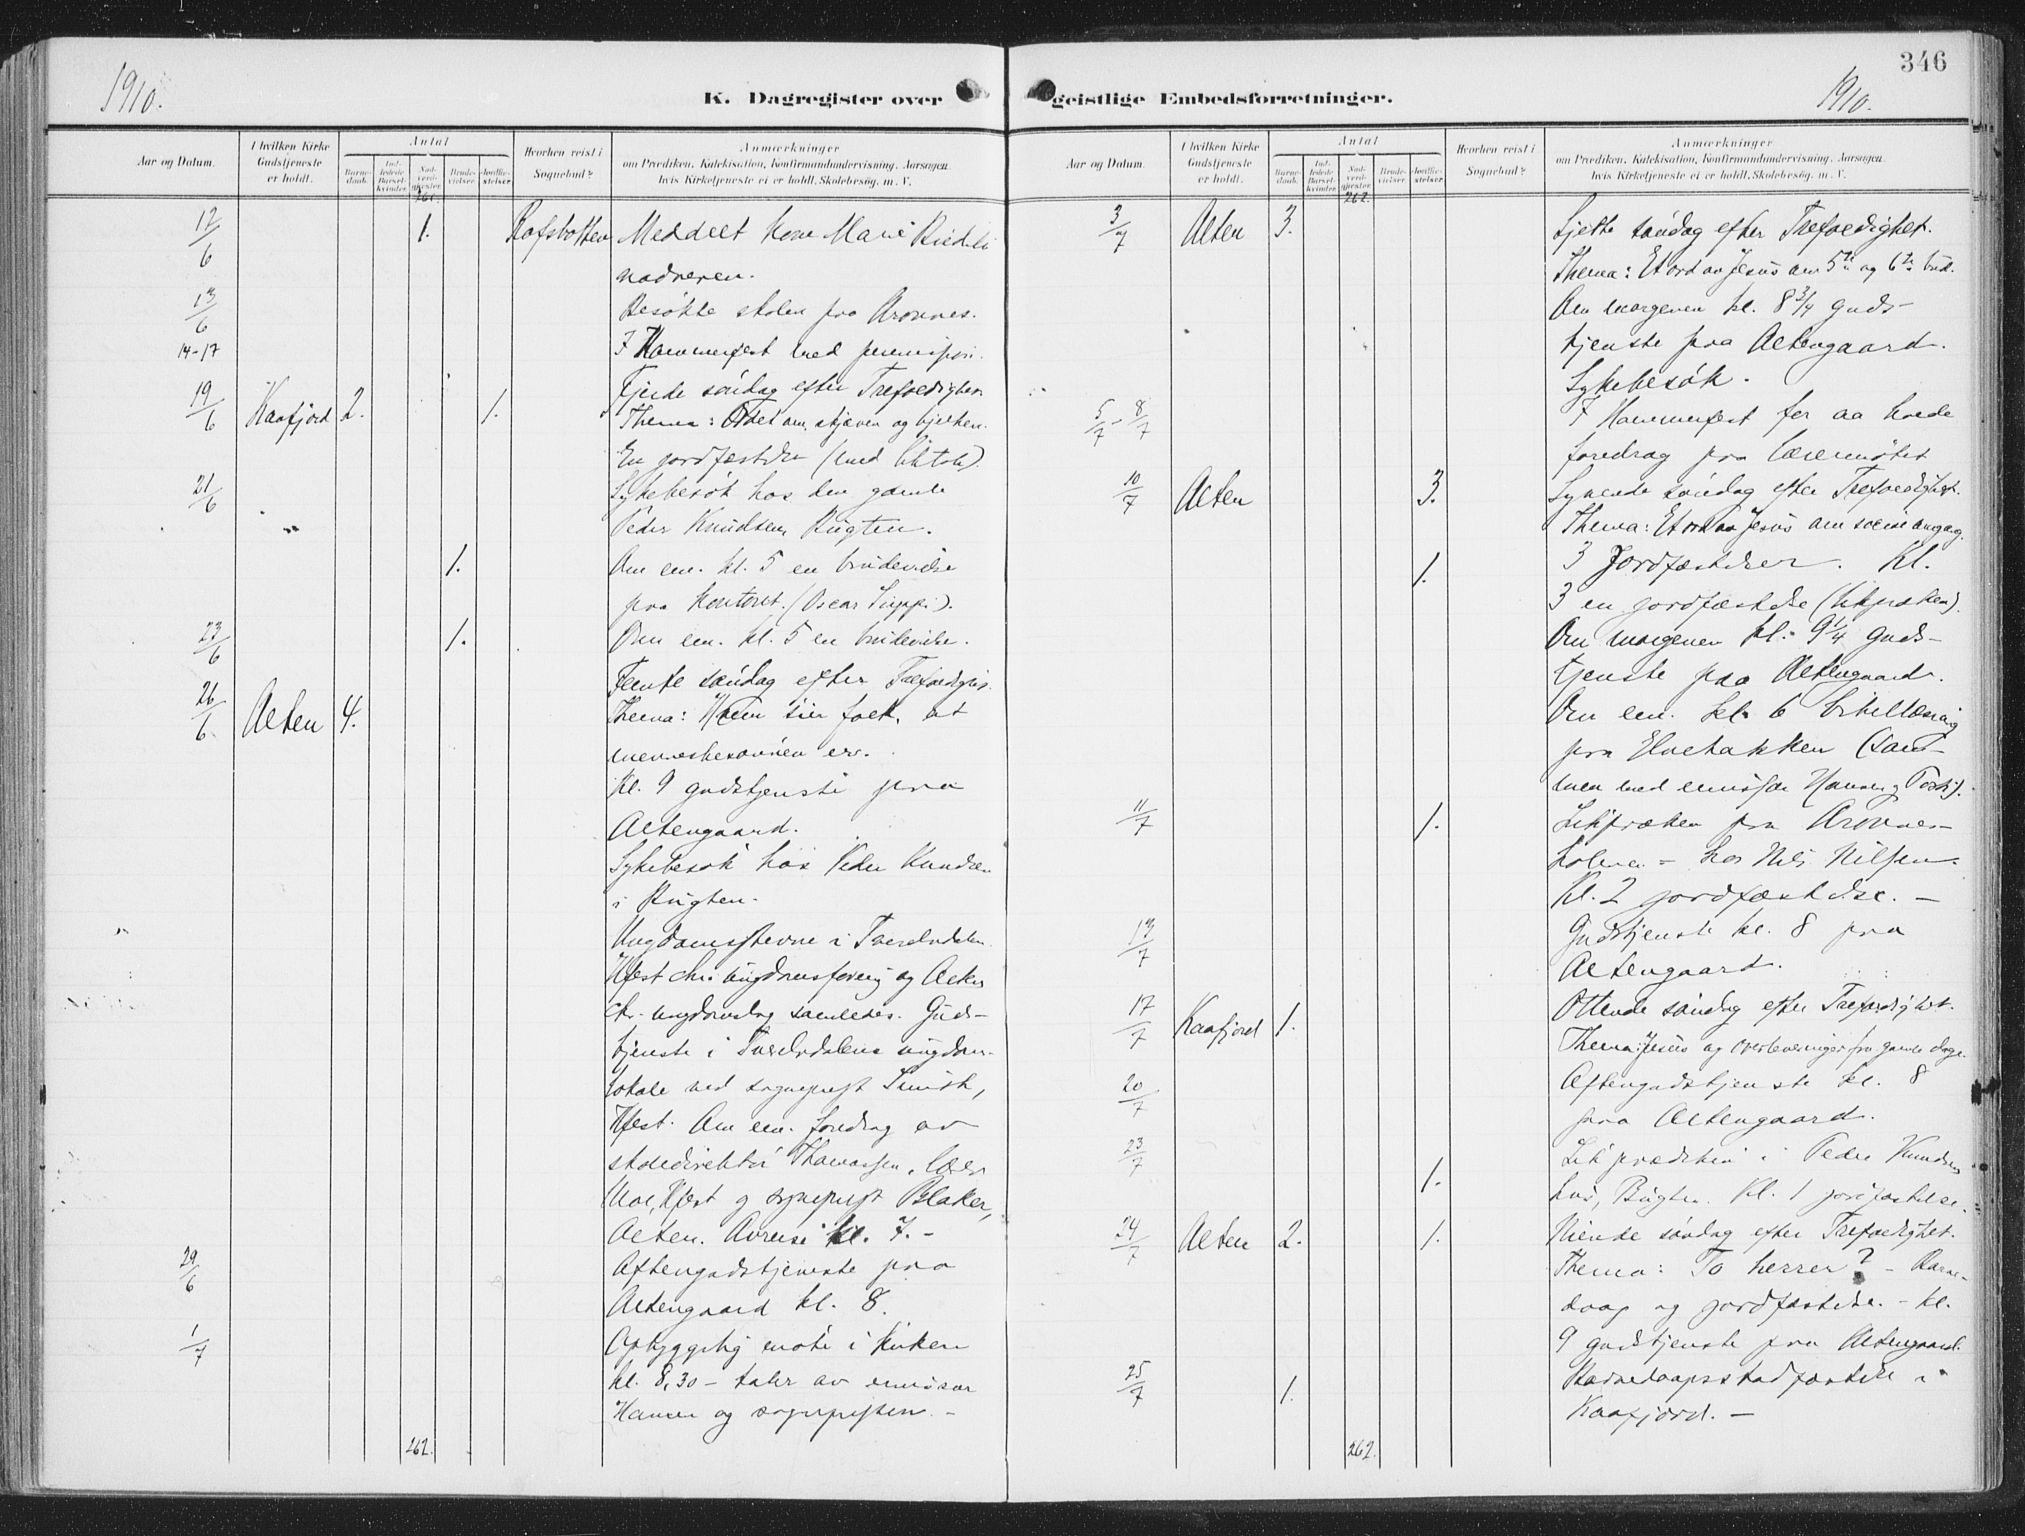 1910.
K. Dagregister over
Aar og Datum.
I hvilken Kirke Gudstjeneste er holdt.
Antal
Barne-daab.
Ind-ledede Barsel-kvinder.
Nad-verd-gjester.
Brude-vielser.
Jordfæ-stelser.
Hvorhen reist i Sognebud?
Anmærkninger
om Prædiken, Katekisation, Konfirmandundervisning, Aarsagen
hvis Kirketjeneste ei er holdt, Skolebesøg. m. V.
261.
12/6 1. Rafsbotten Meddelt kone Marie
nadveren.
13/6 Besøkte skolen paa Aronnes.
14-17 I Hammerfest med
19/6 Kaafjord 2. 1. Fjerde søndag efter Trefoldighet.
Thema: Ordet om skjæven og bjelken.
En jordfæstelse (med liktale).
21/6 Sykebesøk hos den gamle
Peder Knudsen Bugten.
1. Om em. kl. 5 en brudevielse
paa kontoret. (Oscar
23/6 1. Om em. kl. 5 en brudevielse.
26/6 Alten 4. Femte søndag efter Trefoldighet.
Thema: Hvem sier folk, at
menneskesønnen er.
Kl. 9 gudstjeneste paa
Altengaard.
Sykebesøk hos Peder Knudsen
i Bugten.
Ungdomsstevne i Tverelvdalen
Hfest chr. ungdomsforening og Alten
chr. ungdomslag samledes. Guds-
tjeneste i Tverelvdalens ungdoms-
lokale ved sogneprest
Hfest. Om em. foredrag av
skoledirektør Thomassen, lærer
Moe, Hfest og sogneprest Blaker,
Alten. Avreise kl. 7. -
29/6 Aftengudstjeneste paa
Altengaard kl. 8.
1/7 Opbyggelig møte i kirken
kl. 8,30 - taler av emissær
Hansen og sognepresten. -
262.
346
1910.
geistlige Embedsforretninger.
Aar og Datum.
I hvilken Kirke Gudstjeneste er holdt.
Antal
Barne-daab.
Ind-ledede Barsel-kvinder.
Nad-verd-gjester.
Brude-vielser.
Jordfæ-stelser.
Hvorhen reist i Sognebud?
Anmærkninger
om Prædiken, Katekisation, Konfirmandundervisning, Aarsagen
hvis Kirketjeneste ei er holdt, Skolebesøg. m. V.
262.
3/7 Alten 3. Sjette søndag efter Trefoldighet.
Thema: Et ord av Jesus om 5te og 6te bud.
Om morgenen kl. 8 3/4 guds-
tjeneste paa Altengaard.
Sykebesøk.
5/7 - 8/7 I Hammerfest for aa holde
foredrag paa lærermøtet
10/7 Alten 3. Syvende søndag efter Trefoldighet.
Thema: Et ord av Jesus om
3 Jordfæstelser. Kl.
1. 3 en jordfæstelse (likpræken).
Om morgenen kl. 9 1/4 guds-
tjeneste paa Altengaard.
Om em. kl. 6 bibellæsning
paa Elvebakken (sam-
men med emissær Hansen og
11/7 1. Likpræken paa Aronnes-
holmen - hos Nils Nilsen.
Kl. 2 jordfæstelse. -
13/7 Gudstjeneste kl. 8 paa
Altengaard.
17/7 Kaafjord 1. Ottende søndag efter Trefoldighet.
Thema: Jesus og overleveringer fra gamle dage.
20/7 Aftengudstjeneste kl. 8
paa Altengaard.
23/7 Likprædiken i Peder Knudsens
1. hus, Bugten. Kl. 1 jordfæstelse.
24/7 Alten 2. 1. Niende søndag efter Trefoldighet.
Thema: To herrer? - Barne-
daap og jordfæstelse. - kl.
9 gudstjeneste paa Altengaard.
25/7 1. Barnedaapsstadfæstelse i
Kaafjord. -
262.